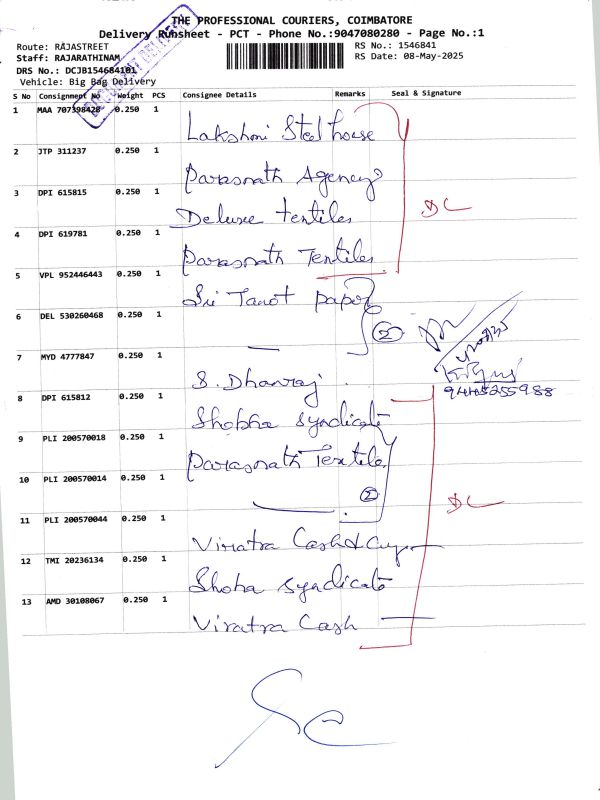 THE PROFESSIONAL COURIERS, COIMBATORE
Delivery Runsheet - PCT - Phone No.:9047080280 - Page No.:1
Route: RAJASTREET
RS No.: 1546841
Staff: RAJARATHINAM
RS Date: 08-May-2025
DRS No.: DCJB154684101
Vehicle: Big Bag Delivery
S No Consignment No Weight PCS Consignee Details Remarks Seal & Signature
1 MAA 707398428 0.250 1 Lakshmi Steel house
2 JTP 311237 0.250 1 Parasnath Agency
3 DPI 615815 0.250 1 Deluxe textiles
DC
4 DPI 619781 0.250 1 Parasnath Textiles
5 VPL 952446443 0.250 1 Sri Tanot paper
6 DEL 530260468 0.250 1 —
2
7 MYD 4777847 0.250 1 S. Dhanraj
9445255988
8 DPI 615812 0.250 1 Shobha syndicate
9 PLI 200570018 0.250 1 Parasnath Textiles
10 PLI 200570014 0.250 1 —
2
DC
11 PLI 200570044 0.250 1 Viratra Cash &
12 TMI 20236134 0.250 1 Shoba syndicate
13 AMD 30108067 0.250 1 Viratra Cash —